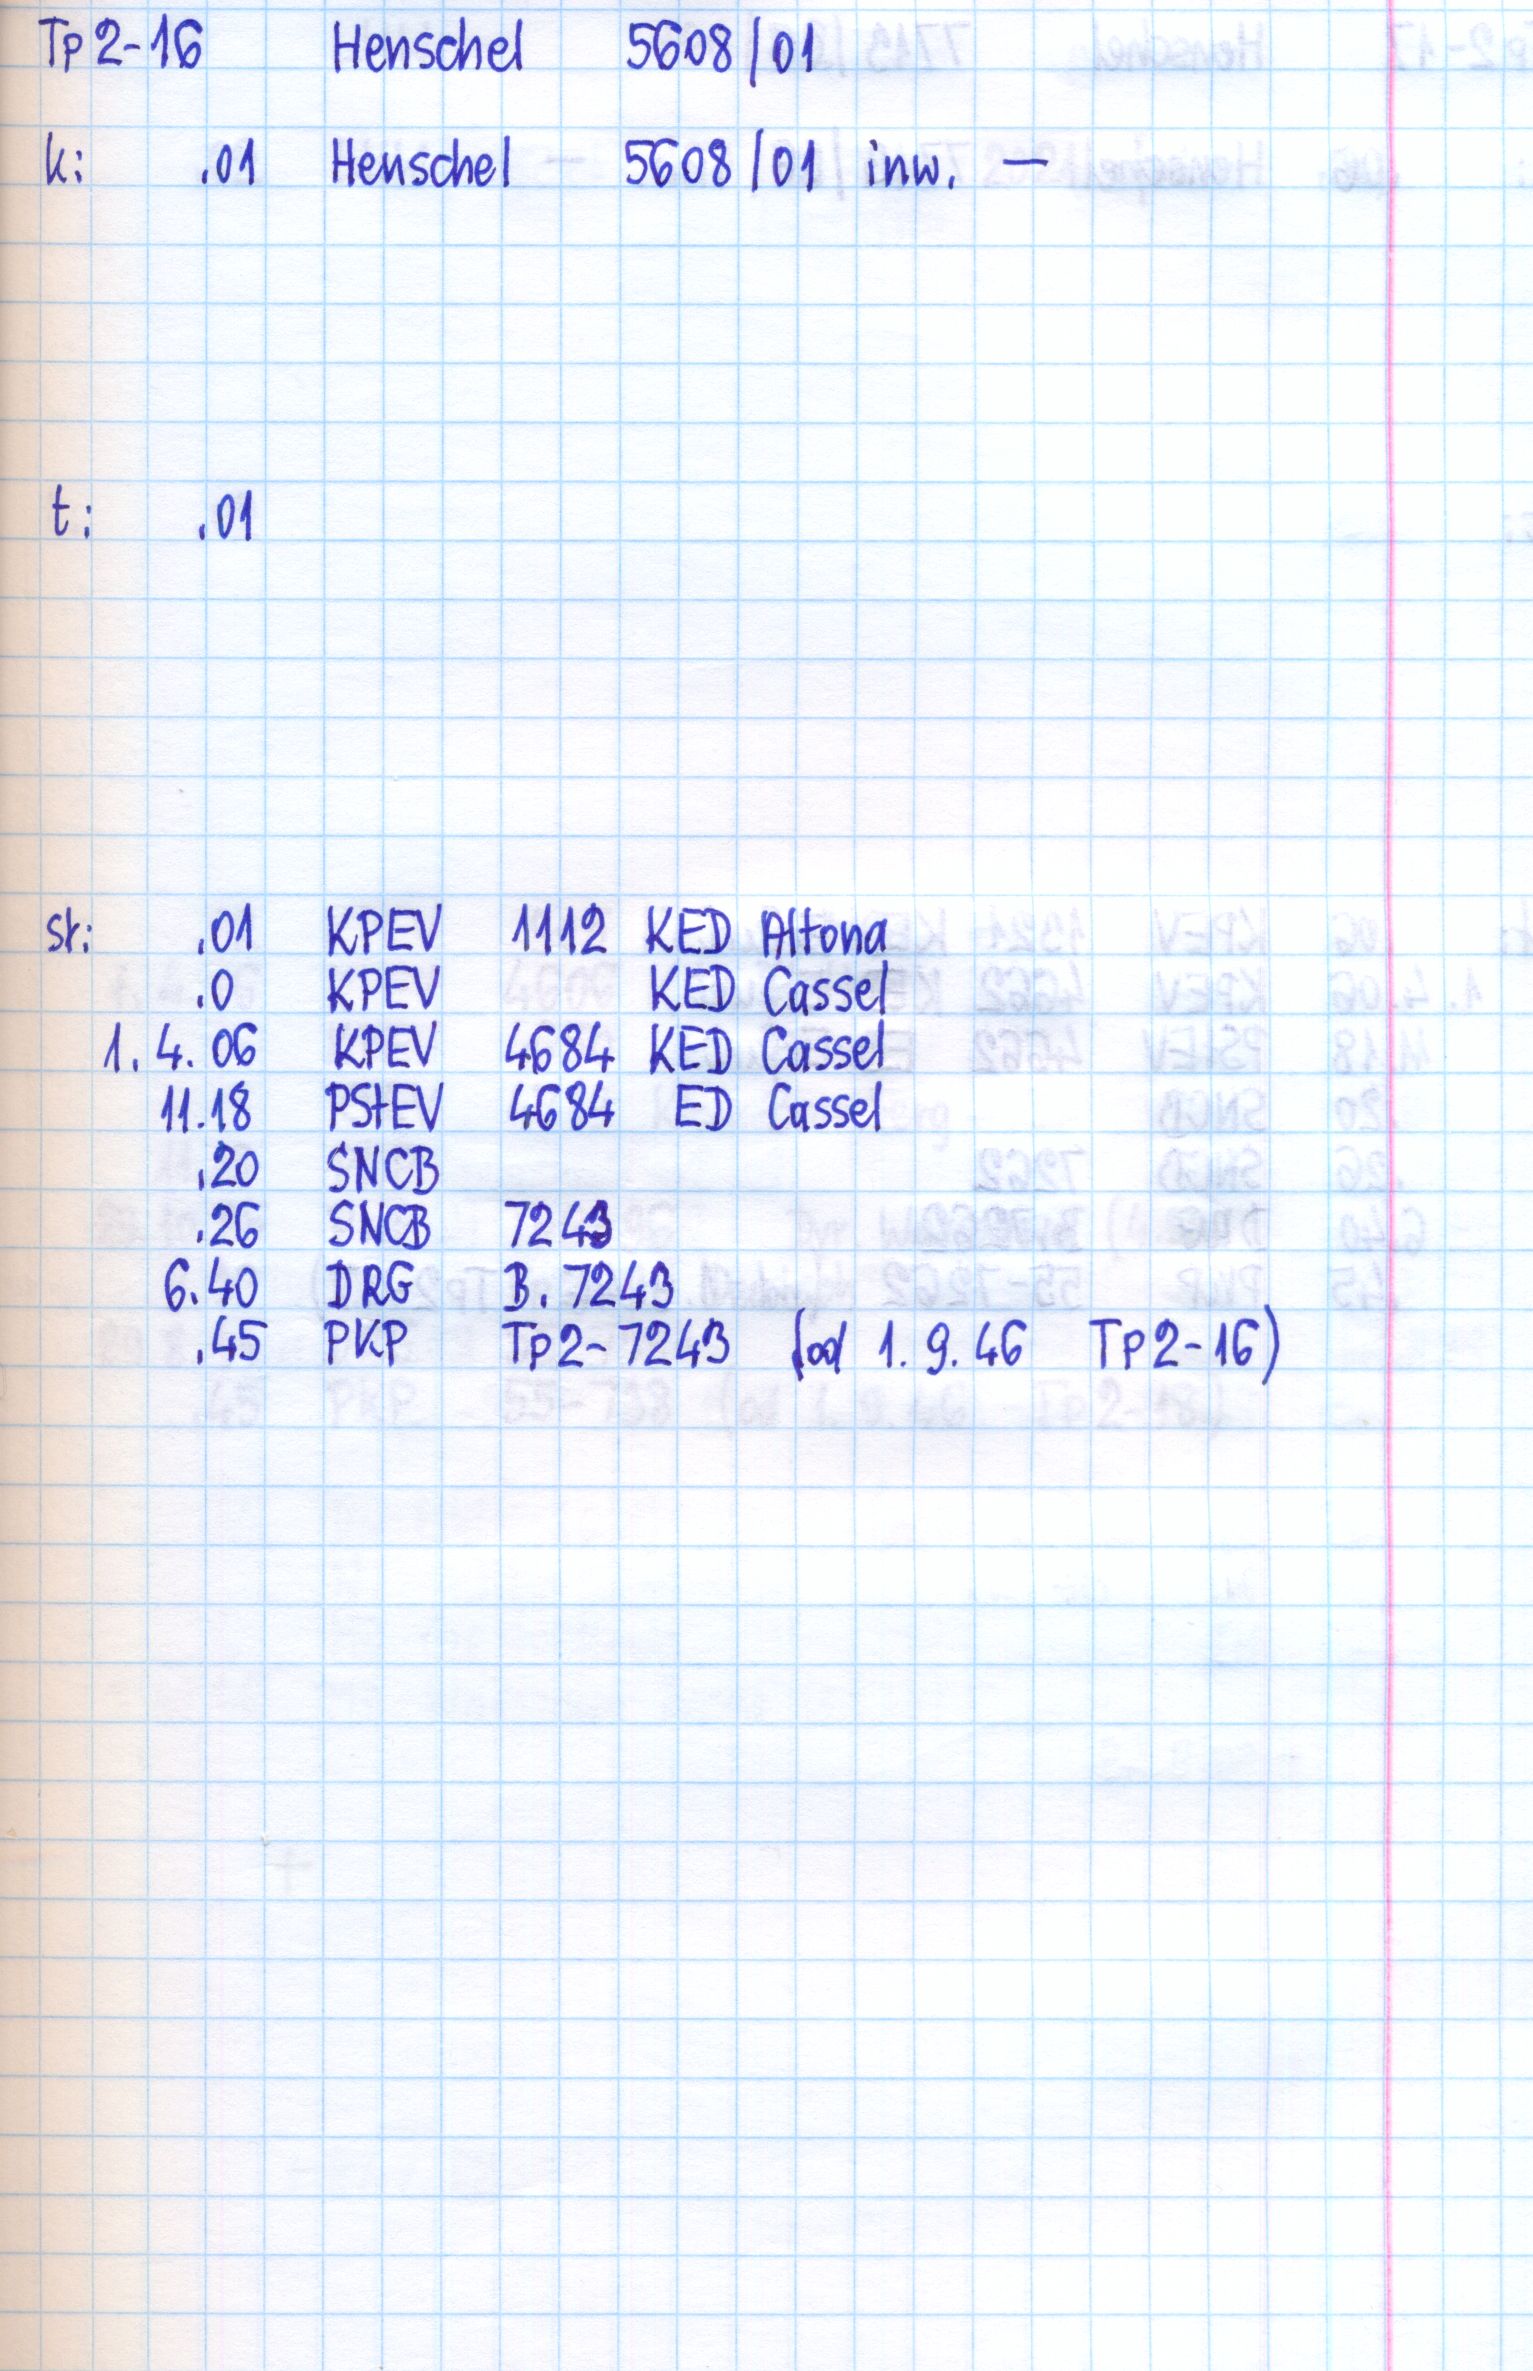 Tp2-16 Henschel 5608/01
k: .01 Henschel 5608/01 inw. —
t: .01
st: .01 KPEV 1112 KED Altona
.0 KPEV KED Cassel
1.4.06 KPEV 4684 KED Cassel
11.18 PStEV 4684 ED Cassel
.20 SNCB
.26 SNCB 7243
6.40 DRG B.7243
.45 PKP Tp2-7243 (od 1.9.46 Tp2-16)